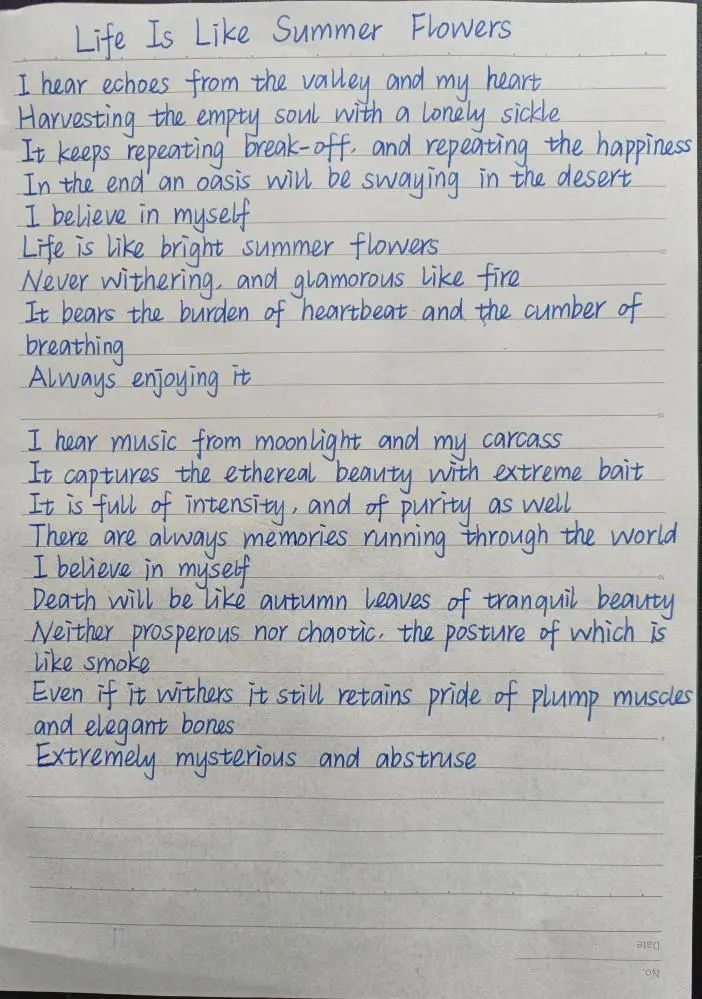 Life Is Like Summer Flowers
I hear echoes from the valley and my heart
Harvesting the empty soul with a lonely sickle
It keeps repeating break-off, and repeating the happiness
In the end an oasis will be swaying in the desert
I believe in myself
Life is like bright summer flowers
Never withering, and glamorous like fire
It bears the burden of heartbeat and the cumber of
breathing
Always enjoying it
I hear music from moonlight and my carcass
It captures the ethereal beauty with extreme bait
It is full of intensity, and of purity as well
There are always memories running through the world
I believe in myself
Death will be like autumn leaves of tranquil beauty
Neither prosperous nor chaotic, the posture of which is
like smoke
Even if it withers it still retains pride of plump muscles
and elegant bones
Extremely mysterious and abstruse
Date
No.